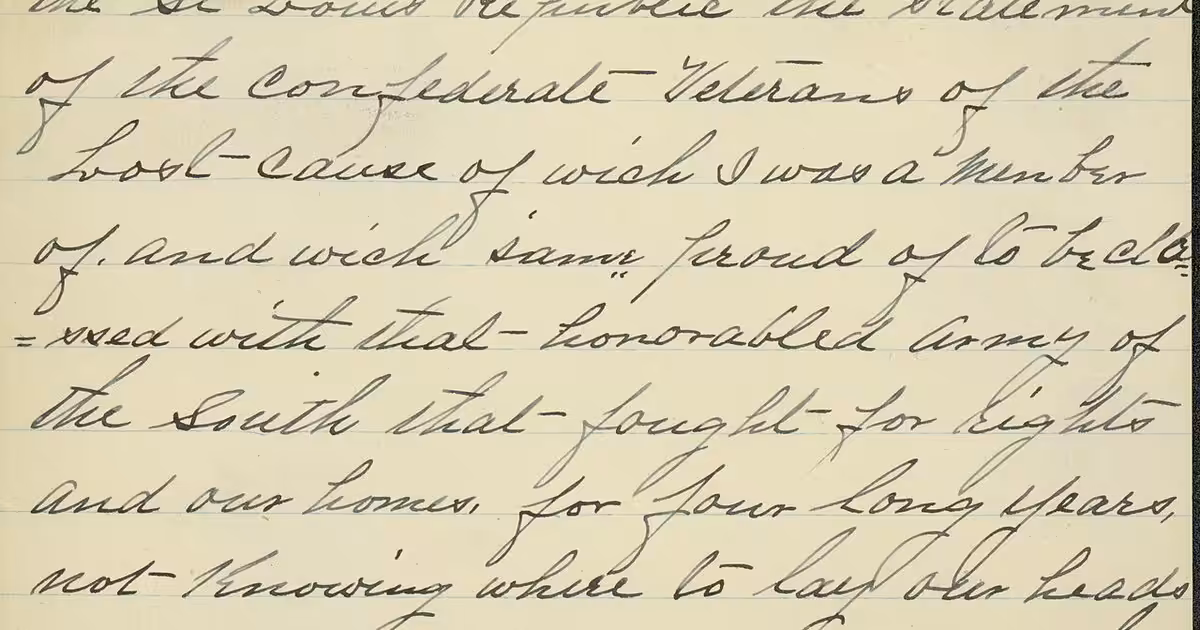 the St Louis Republic the statement
of the Confederate Veterans of the
Lost Cause of wich I was a Member
of. and wich same proud of to be cla=
=ssed with that honorabled army of
the South that fought for rights
and our homes. for four long years,
not Knowing where to lay our heads